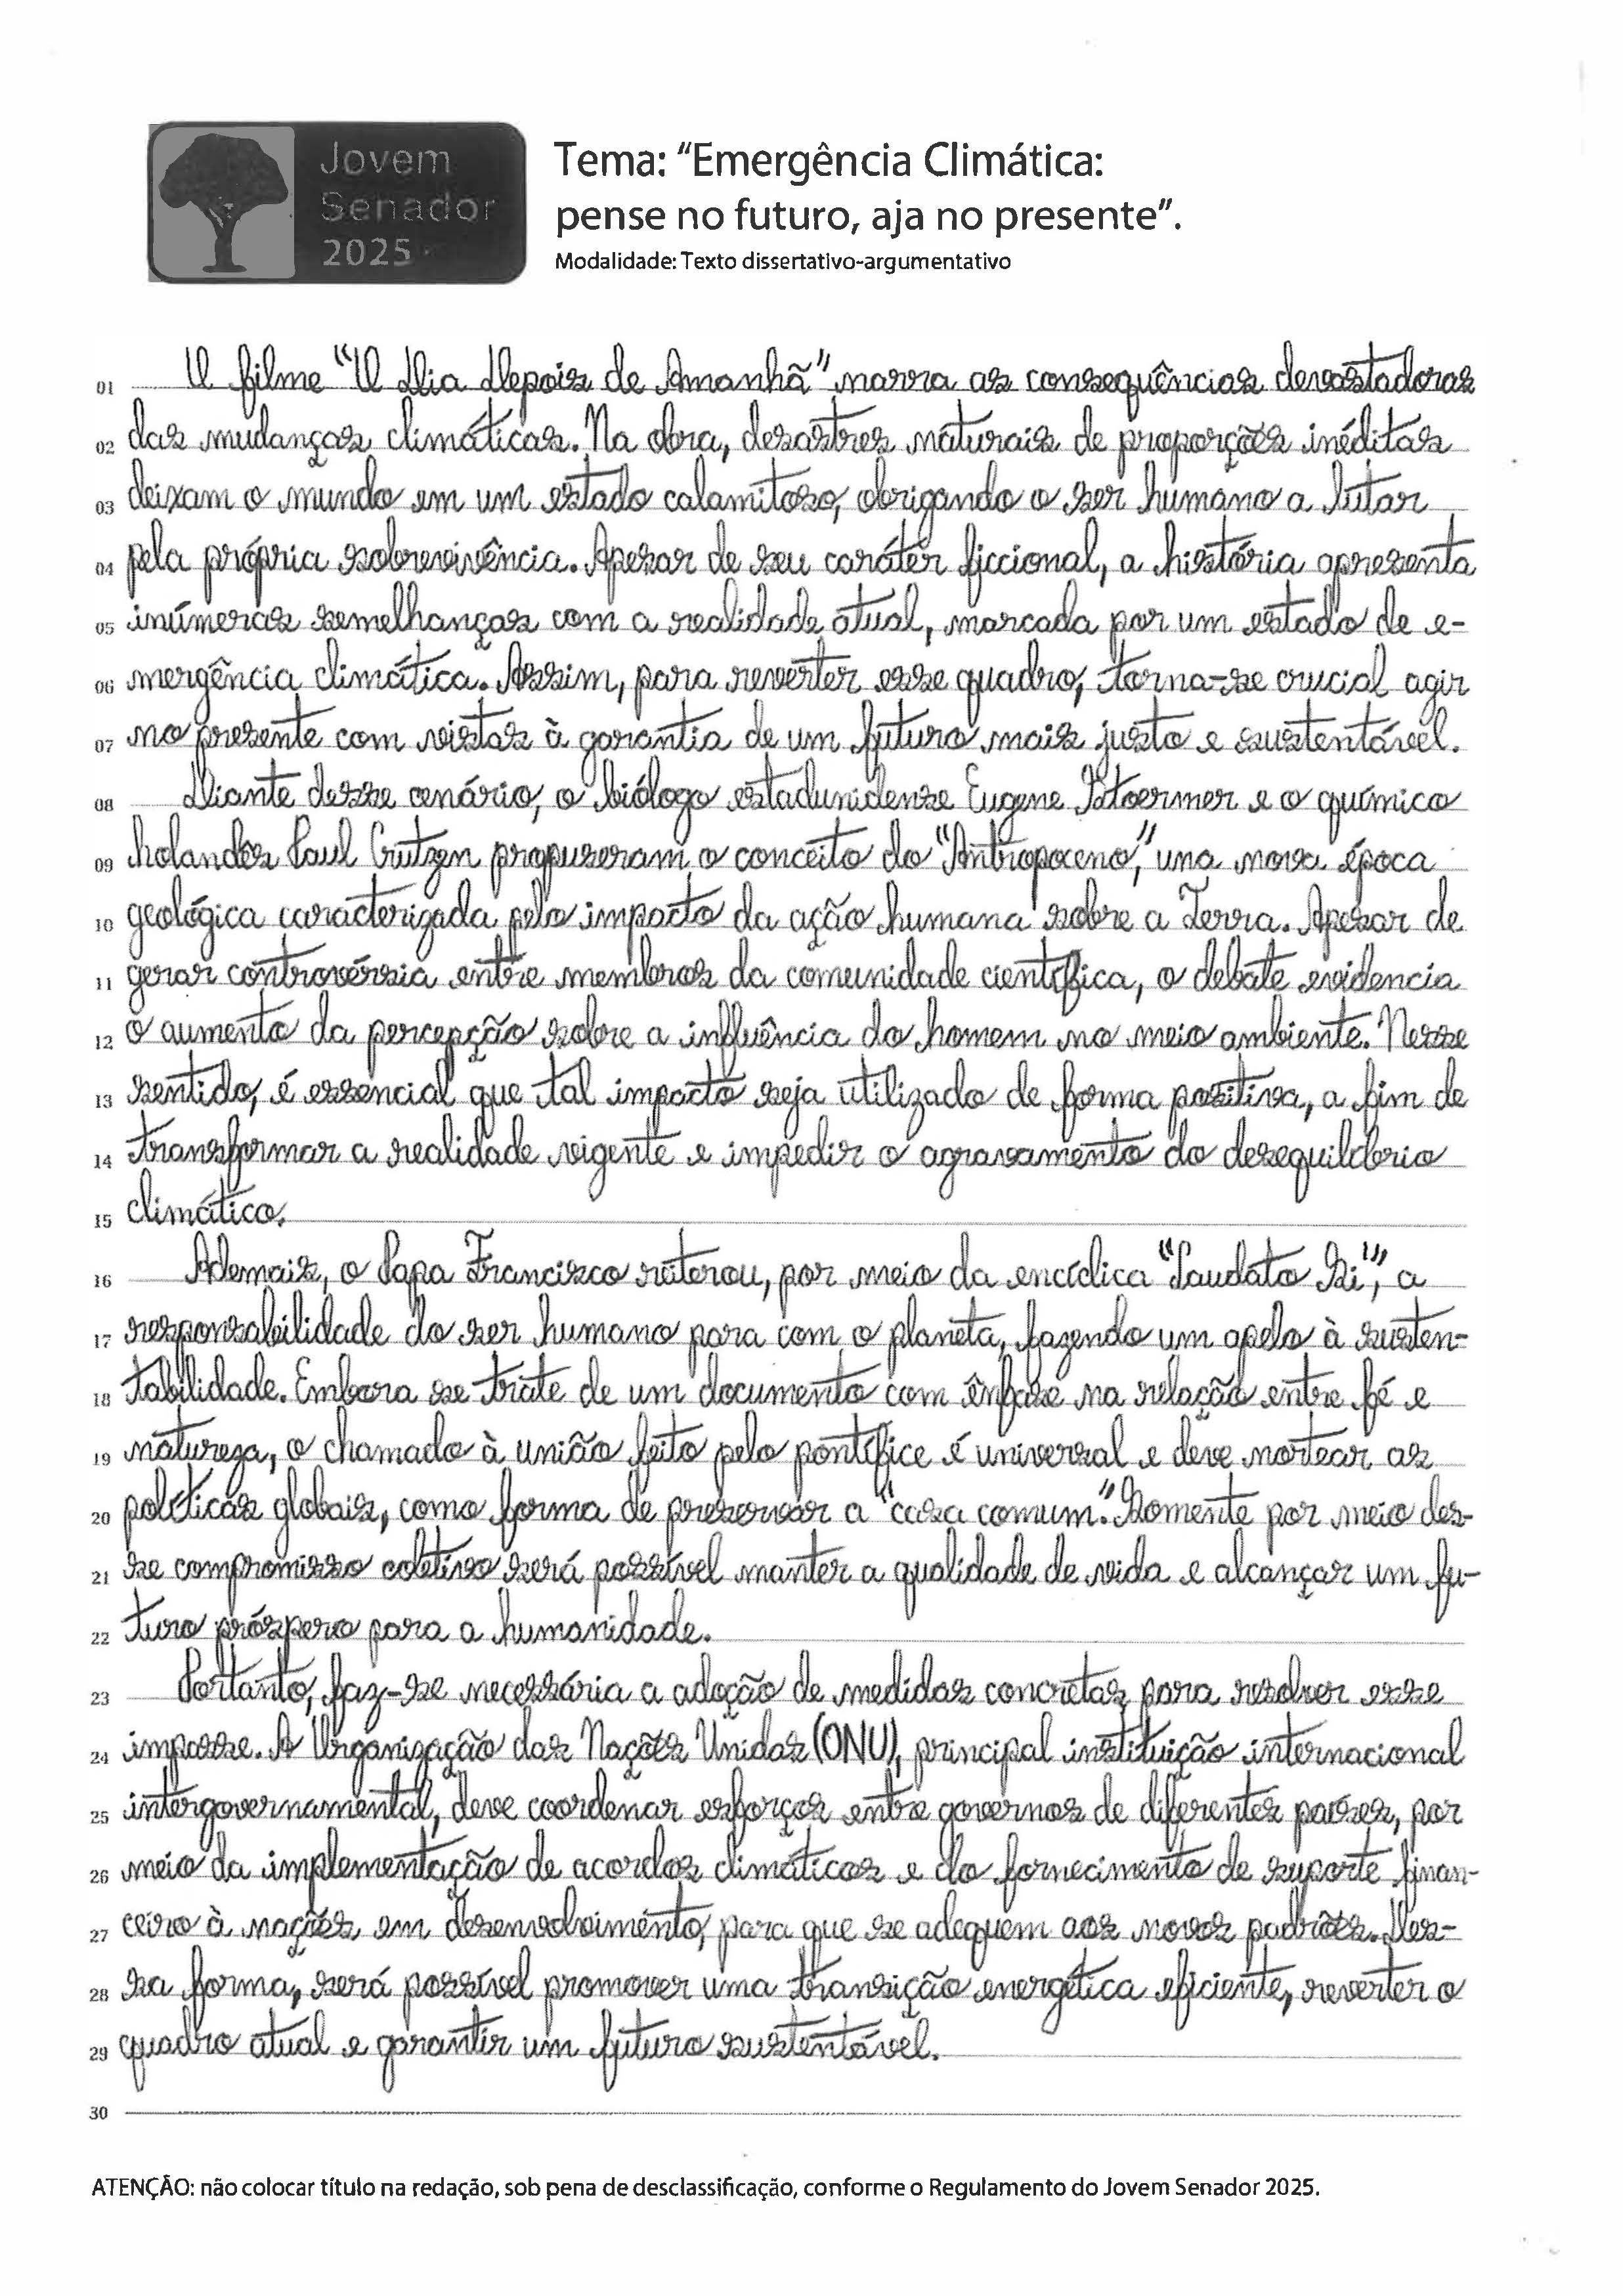 Jovem
Senador
2025
Tema: "Emergência Climática:
pense no futuro, aja no presente".
Modalidade: Texto dissertativo-argumentativo
01 O filme "O Dia Depois de Amanhã" narra as consequências devastadoras
02 das mudanças climáticas. Na obra, desastres naturais de proporções inéditas
03 deixam o mundo em um estado calamitoso, obrigando o ser humano a lutar
04 pela própria sobrevivência. Apesar de seu caráter ficcional, a história apresenta
05 inúmeras semelhanças com a realidade atual, marcada por um estado de e-
06 mergência climática. Assim, para reverter esse quadro, torna-se crucial agir
07 no presente com vistas à garantia de um futuro mais justo e sustentável.
08 Diante desse cenário, o biólogo estadunidense Eugene Stoermer e o químico
09 holandês Paul Crutzen propuseram o conceito do "Antropoceno", uma nova época
10 geológica caracterizada pelo impacto da ação humana sobre a Terra. Apesar de
11 gerar controvérsia entre membros da comunidade científica, o debate evidencia
12 o aumento da percepção sobre a influência do homem no meio ambiente. Nesse
13 sentido, é essencial que tal impacto seja utilizado de forma positiva, a fim de
14 transformar a realidade vigente e impedir o agravamento do desequilíbrio
15 climático.
16 Ademais, o Papa Francisco reiterou, por meio da encíclica "Laudato Si'", a
17 responsabilidade do ser humano para com o planeta, fazendo um apelo à susten-
18 tabilidade. Embora se trate de um documento com ênfase na relação entre fé e
19 natureza, o chamado à união feito pelo pontífice é universal e deve nortear as
20 políticas globais, como forma de preservar a "casa comum". Somente por meio des-
21 se compromisso coletivo será possível manter a qualidade de vida e alcançar um fu-
22 turo próspero para a humanidade.
23 Portanto, faz-se necessária a adoção de medidas concretas para resolver esse
24 impasse. A Organização das Nações Unidas (ONU), principal instituição internacional
25 intergovernamental, deve coordenar esforços entre governos de diferentes países, por
26 meio da implementação de acordos climáticos e do fornecimento de suporte finan-
27 ceiro à nações em desenvolvimento, para que se adequem aos novos padrões. Des-
28 sa forma, será possível promover uma transição energética eficiente, reverter o
29 quadro atual e garantir um futuro sustentável.
30
ATENÇÃO: não colocar título na redação, sob pena de desclassificação, conforme o Regulamento do Jovem Senador 2025.